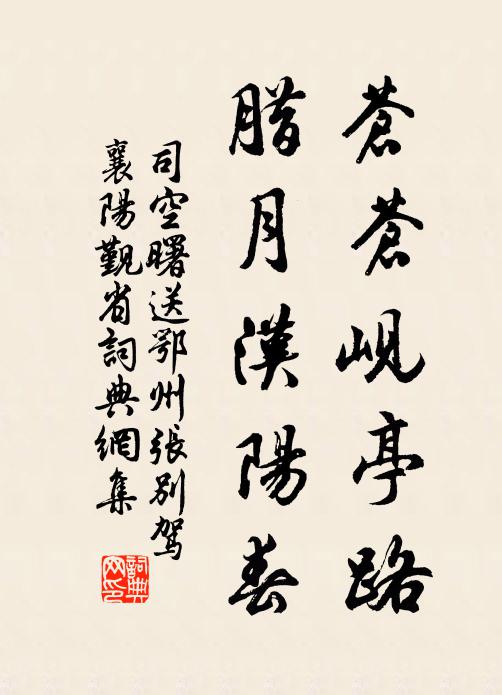 蒼蒼峴亭路
腊月漢陽春
司空曙送鄂州張別駕
襄陽覲省詞典網集
詞典
网印